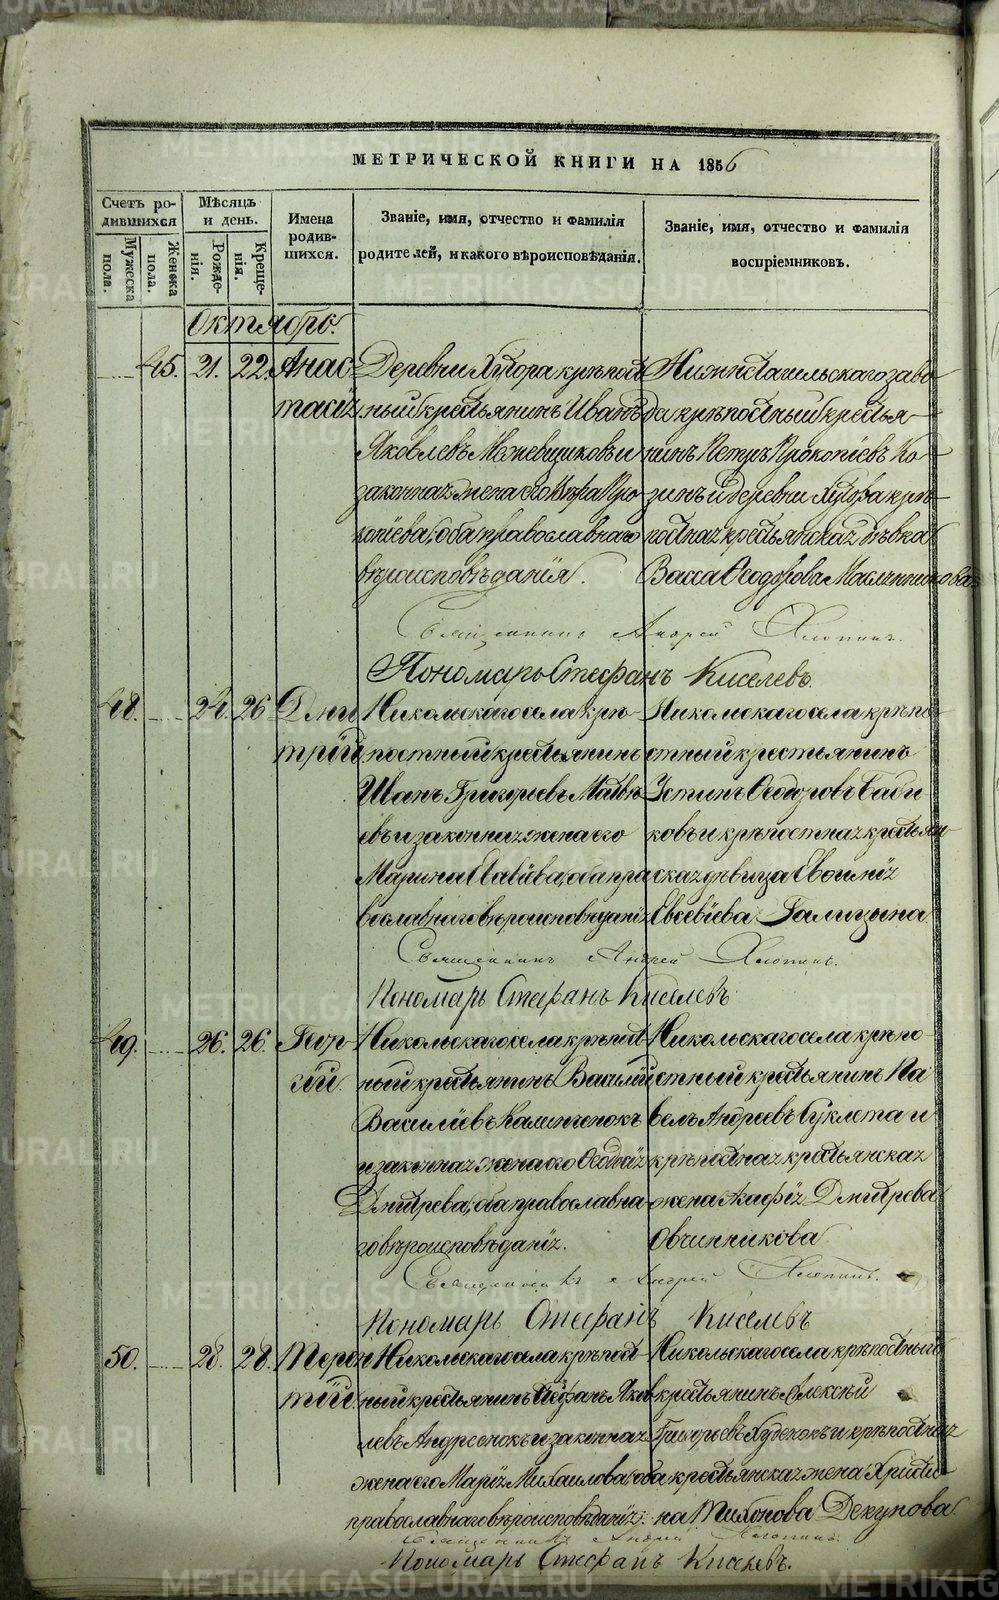 МЕТРИЧЕСКОЙ КНИГИ НА 1856
Счетъ ро-
дившихся
Мужеска
пола.
Женска
пола.
Мѣсяцъ
и день.
Рожде-
нія.
Креще-
нія.
Имена
родив-
шихся.
Званіе, имя, отчество и фамилія
родителей, и какого вѣроисповѣданія.
Званіе, имя, отчество и фамилія
воспріемниковъ.
Октябрь.
45. 21. 22. Анас-
тасія
Деревни Хутора крѣпост
ный крестьянинъ Иванъ
Яковлевъ и
законная жена его Про
копіева, оба православнаго
вѣроисповѣданія.
Нижнетагильскаго заво
да крѣпостный крестья-
нинъ Петръ Прокопіевъ Ко
зинъ и деревни Хутора крѣ
постная крестьянская дѣвка
Васса Ѳеодорова Маслянникова
Священникъ Андрей Хлопинъ.
Пономарь Стефанъ Киселевъ.
48. 24. 26 Дми
трій
Никольскаго села крѣ-
постный крестьянинъ
Иванъ Григорьевъ Матвѣ
евъ и законная жена его
Марина Савіева, оба пра
вославнаго вѣроисповѣданія
Никольскаго села крѣпо-
стный крестьянинъ
Устинъ Ѳеодоровъ
ковъ и крѣпостная крестьян-
ская дѣвица
Евсевіева Галицына
Священникъ Андрей Хлопинъ.
Пономарь Стефанъ Киселевъ
49. 26. 26. Геор-
гій.
Никольскаго села крѣпост
ный крестьянинъ Василій
Василіевъ Калинченокъ
и законная жена его Ѳеодосія
Дмитрева, оба православна-
го вѣроисповѣданія.
Никольскаго села крѣпо-
стный крестьянинъ Па
велъ Андреевъ Суклета и
крѣпостная крестьянская
жена Агафія Дмитрева
Овчинникова
Священникъ Андрей Хлопинъ.
Пономарь Стефанъ Киселевъ
50. 28. 28. Терен
тій
Никольскаго села крѣпост-
ный крестьянинъ Стефанъ Яков
левъ Андреенокъ и законная
жена его Марія Михаилова, оба
православнаго вѣроисповѣданія.
Никольскаго села крѣпостный
крестьянинъ Алексѣй
Григорьевъ Худенокъ и крѣпостная
крестьянская жена Христи
на Тихонова Декунова
Священникъ Андрей Хлопинъ.
Пономарь Стефанъ Киселевъ.
METRIKI.GASO-URAL.RU